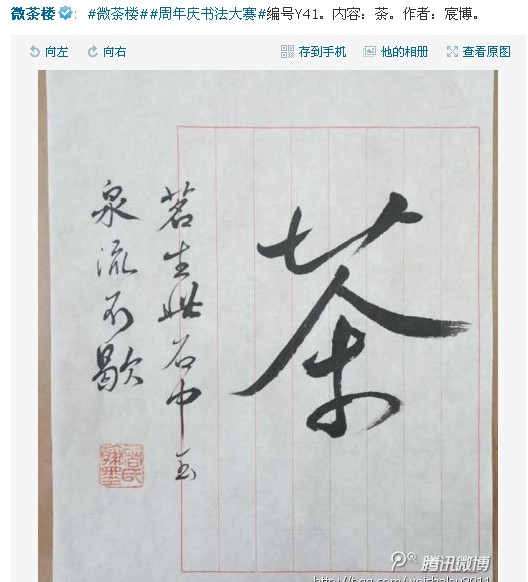 微茶楼：#微茶楼##周年庆书法大赛#编号Y41。内容：茶。作者：宸博。
向左 向右 存到手机 他的相册 查看原图
茶
茗生此石中玉
泉流不歇
腾讯微博
http://t.qq.com/weichalou2011